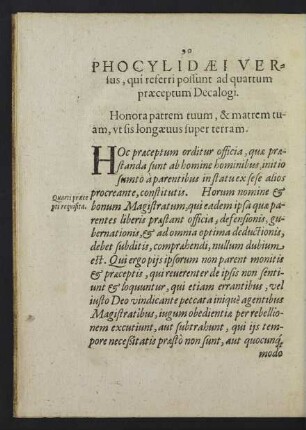 90
PHOCYLIDÆI VER=
sus, qui referri possunt ad quartum
præceptum Decalogi.
Honora patrem tuum, & matrem tu-
am, vt sis longæuus super terram.
HOc præceptum orditur officia, quæ præ-
standa sunt ab homine hominibus, initio
sumto à parentibus in statu ex sese alios
procreante, constitutis. Horum nomine &
Quarti præce
pti requisita.
bonum Magistratum, qui eadem ipsa quæ pa-
rentes liberis præstant officia, defensionis, gu-
bernationis, & ad omnia optima deductionis,
debet subditis, comprehendi, nullum dubium
est. Qui ergo pijs ipsorum non parent monitis
& præceptis, qui reuerenter de ipsis non senti-
unt & loquuntur, qui etiam errantibus, vel
iusto Deo vindicante peccata iniquè agentibus
Magistratibus, iugum obedientiæ per rebellio-
nem excutiunt, aut subtrahunt, qui ijs tem-
pore necessitatis præstò non sunt, aut quocunq;
modo